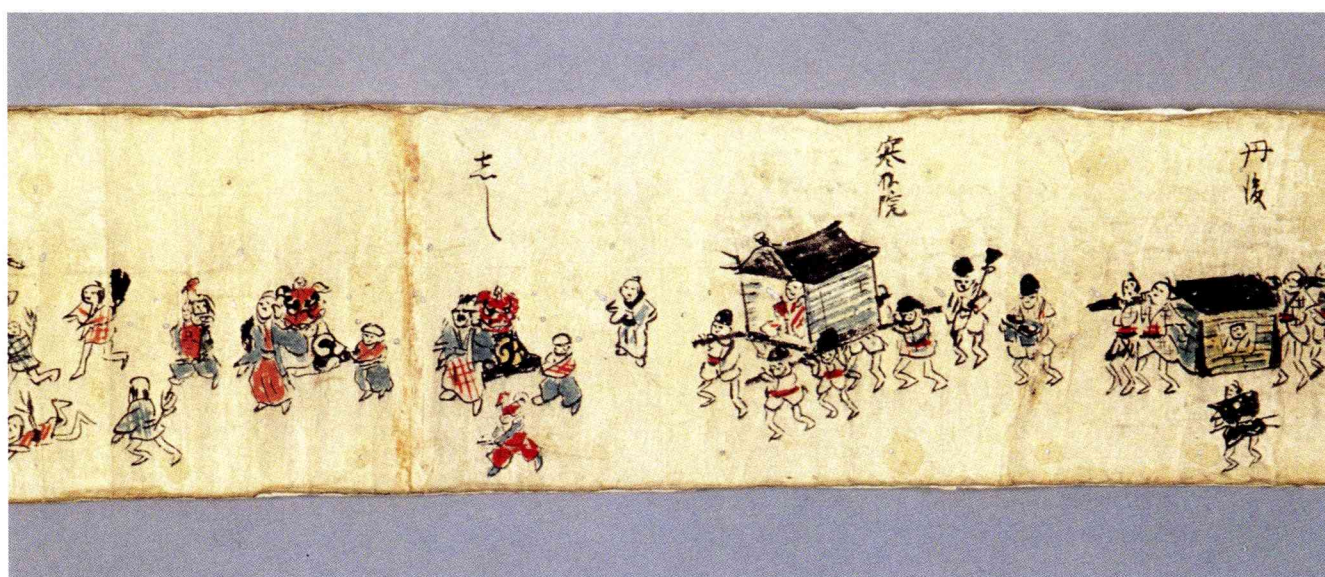 丹後
寒松院
志し